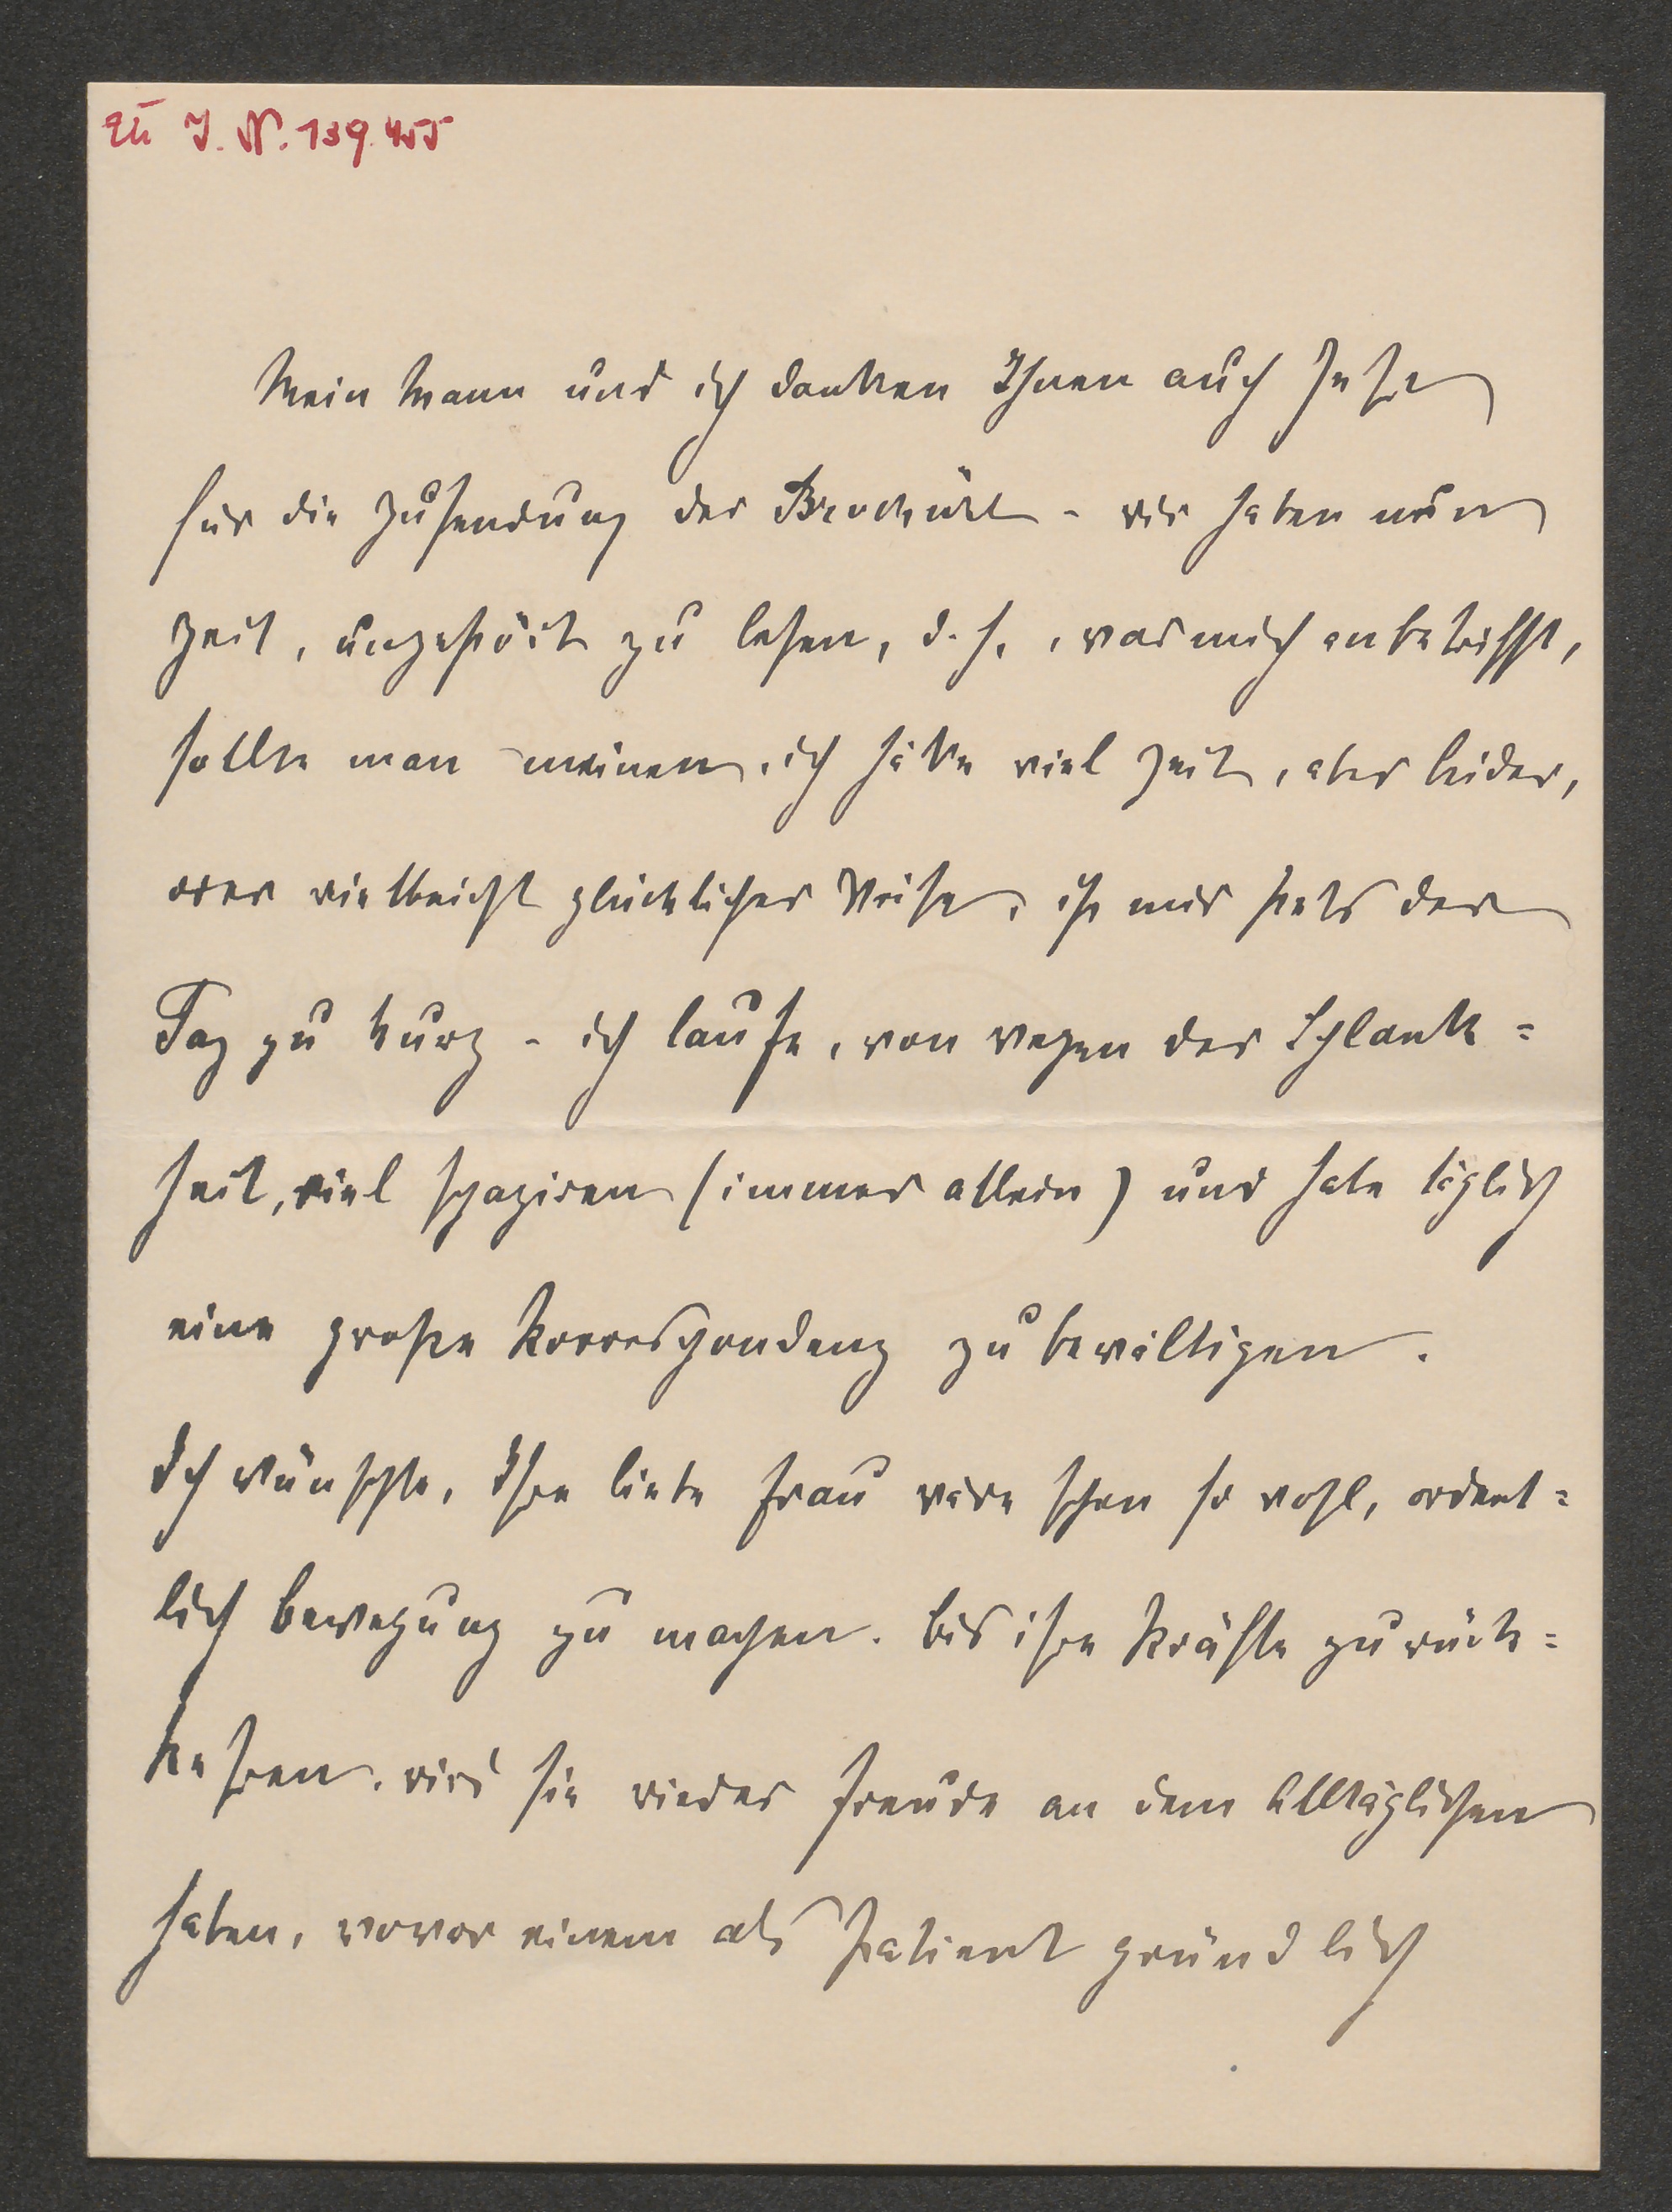 Zu I. N. 139.455
Mein Mann und ich danken Ihnen auch sehr
für die Zusendung der Brochüre – wir haben nun
Zeit, ungestört zu lesen, d. h., was mich anbetrifft,
sollte man meinen, ich hätte viel Zeit, aber leider,
oder vielleicht glücklicher Weise, ist mir stets der
Tag zu kurz – ich laufe, von wegen der Schlank=
heit, viel spaziren (immer allein) und habe täglich
eine große Korrespondenz zu bewältigen.
Ich wünschte, Ihre liebe Frau wäre schon so wohl, ordent=
lich Bewegung zu machen. Bis ihre Kräfte zurück=
kehren, wird sie wieder Freude an dem Alltäglichen
haben, wovor einem als Patient gründlich